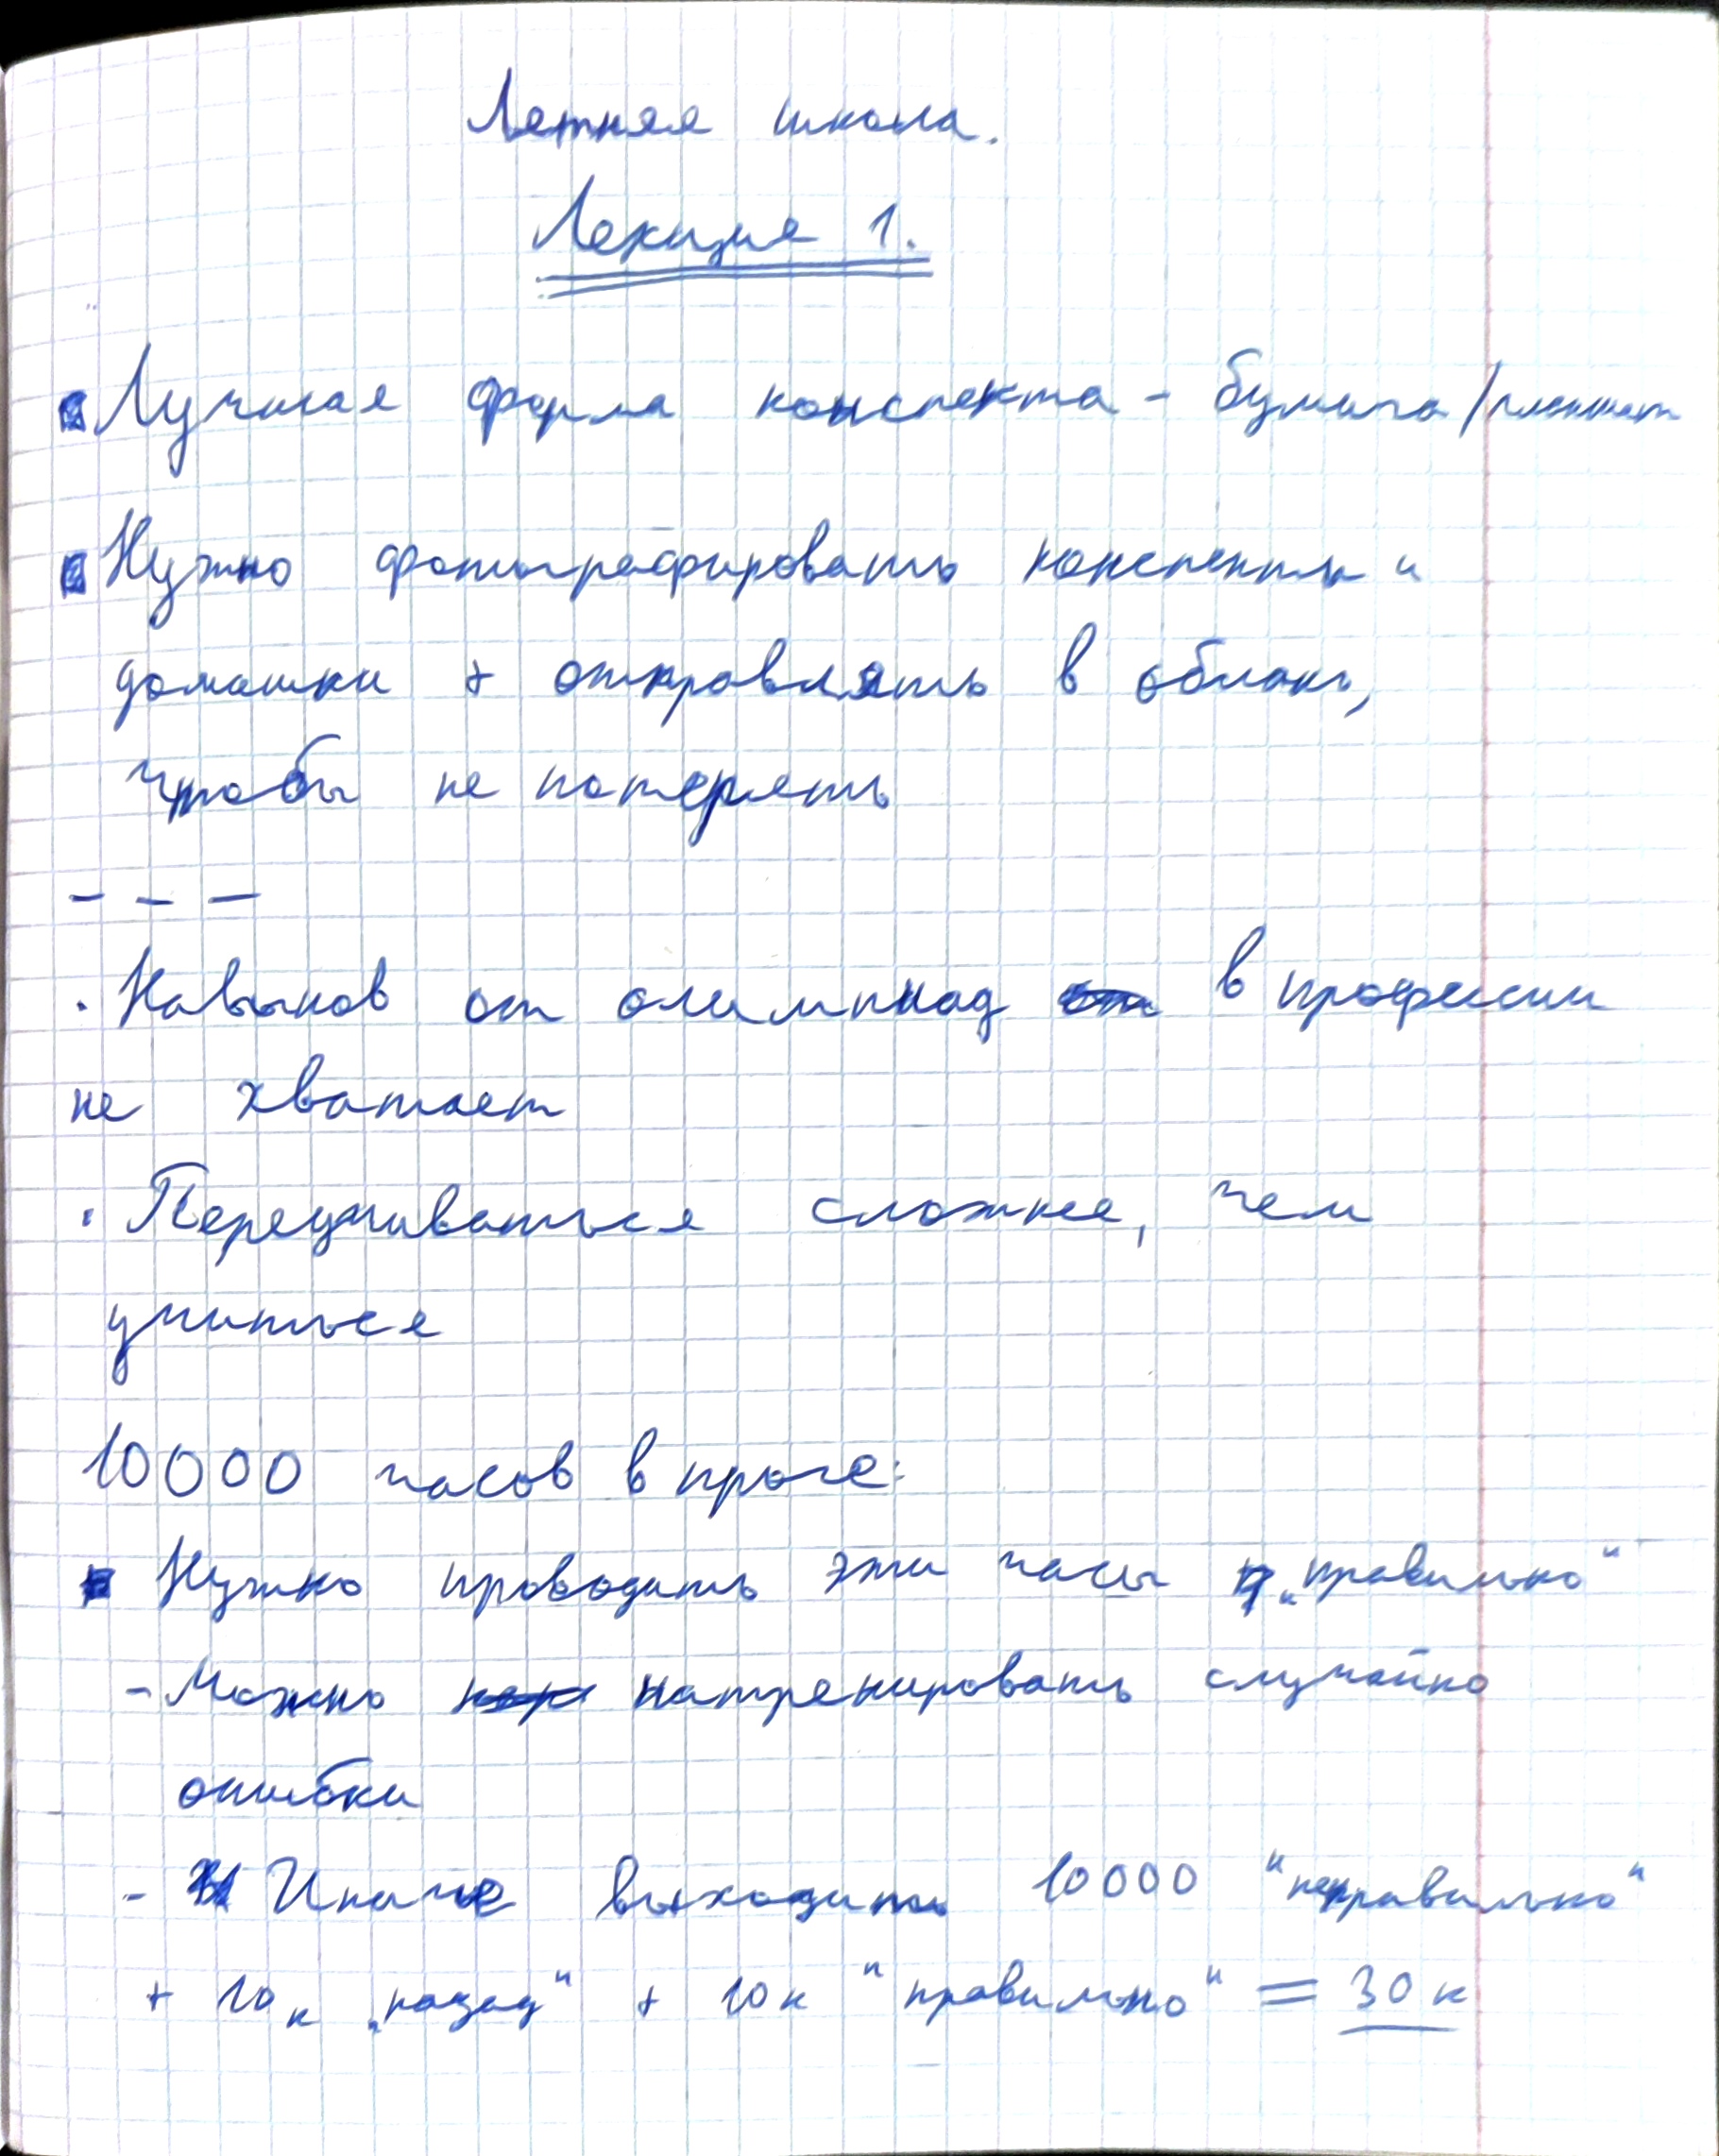 Летняя школа.
Лекция 1.
Лучшая форма конспекта - бумага/планшет
Нужно фотографировать конспекты и
домашки + отправлять в облако,
чтобы не потерять
- - -
· Навыков от олимпиад в профессии
не хватает
· Переучиваться сложнее, чем
учиться
10000 часов в проге:
Нужно проводить эти часы „правильно“
- Можно натренировать случайно
ошибки
- Иначе выходить 10000 "неправильно"
+ 10к „назад“ + 10к "правильно" = 30к